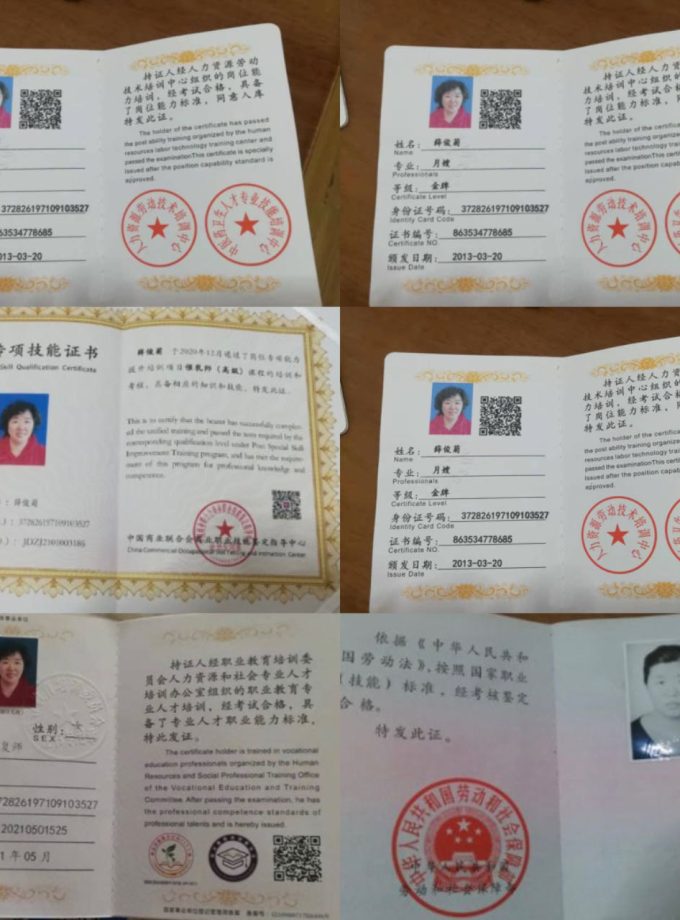 持证人经人力资源劳动
技术培训中心组织的岗位能
力培训，经考试合格，具备
了岗位能力标准，同意入库
特发此证。
The holder of the certificate has passed
the post ability training organized by the human
resources labor technology training center and
passed the examinationThis certificate is specially
issued after the position capability standard is
approved.
372826197109103527
863534778685
2013-03-20
人力资源劳动技术培训中心
中医药卫生人才专业技能培训中心
姓名： 薛俊菊
Name
专业： 月嫂
Professionals
等级： 金牌
Certificate Level
身份证号码： 372826197109103527
Identity Card Code
证书编号： 863534778685
Certificate NO
颁发日期： 2013-03-20
Issue Date
持证人经人力资
技术培训中心组织
力培训，经考试合格
了岗位能力标准，同
特发此证。
The holder of the certifica
the post ability training organi
resources labor technology train
passed the examinationThis certi
issued after the position capabili
approved.
人力资源劳动技术培训中心
专项技能证书
Skill Qualification Certificate
薛俊菊
372826197109103527
JDZJ2101003186
薛俊菊 于2020年12月通过了岗位专项能力
提升培训项目催乳师（高级）课程的培训和
考核，具备相应的知识和技能，特发此证。
This is to certify that the bearer has successfully complet-
ed the unified training and passed the tests required by the
corresponding qualification level under Post Special Skill
Improvement Training program, and has met the require-
ment of this program for professional knowledge and
competence.
中国商业联合会商业职业技能鉴定指导中心
China Commercial Occupational Skill Testing and Instruction Center
姓名： 薛俊菊
Name
专业： 月嫂
Professionals
等级： 金牌
Certificate Level
身份证号码： 372826197109103527
Identity Card Code
证书编号： 863534778685
Certificate NO
颁发日期： 2013-03-20
Issue Date
持证人经人力资
技术培训中心组织
力培训，经考试合格
了岗位能力标准，同
特发此证。
The holder of the certifica
the post ability training organi
resources labor technology train
passed the examinationThis certi
issued after the position capabili
approved.
人力资源劳动技术培训中心
性别： 女
SEX
复师
372826197109103527
20210501525
1 年 05 月
持证人经职业教育培训委
员会人力资源和社会专业人才
培训办公室组织的职业教育专
业人才培训，经考试合格，具
备了专业人才职业能力标准，
特此发证。
The certificate holder is trained in vocational
education professionals organized by the Human
Resources and Social Professional Training Office
of the Vocational Education and Training
Committee. After passing the examination, he has
the professional competence standards of
professional talents and is hereby issued.
依据《中华人民共和
国劳动法》，按照国家职业
（技能）标准，经考核鉴定
合格。
特发此证。
中华人民共和国劳动和社会保障部
中华人民共和国
劳动和社会保障部